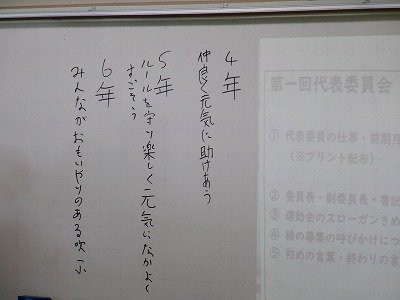 4年
仲良く元気に助けあう
5年
ルールを守り楽しく元気になかよく
すごそう
6年
みんながおもいやりのある吹一小
第一回代表委員会
① 代表委員の仕事・前期月
（※プリント配布）
② 委員長・副委員長・書記
③ 運動会のスローガンきめ
④ 絵の募集の呼びかけにつ
⑤ 初めの言葉・終わりの言